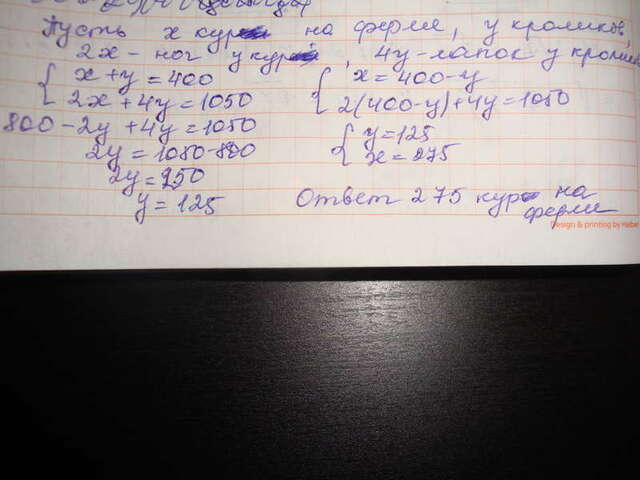 Пусть x кур на ферме, y кроликов,
2x - ног у кур, 4y - лапок у кролик
{ x + y = 400
2x + 4y = 1050
{ x = 400 - y
2(400 - y) + 4y = 1050
800 - 2y + 4y = 1050
2y = 1050 - 800
2y = 250
y = 125
{ y = 125
x = 275
Ответ 275 кур на
ферме
Design & printing by Hebe